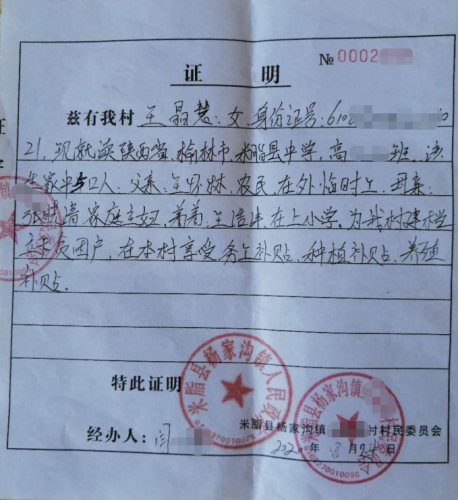 № 0002
证 明
兹有我村 王晶慧：女.身份证号：610
21，现就读陕西省，榆林市，米脂县中学，高 班，该
生家中5口人，父亲： 农民 在外临时工，母亲：
家庭主妇，弟弟： 在上小学，为我村建档
贫困户，在本村享受务工补贴，种植补贴，养殖
补贴。
特此证明
米脂县杨家沟镇人民政府
米脂县杨家沟镇 村民委员会
经办人：闫
2020年 月 日